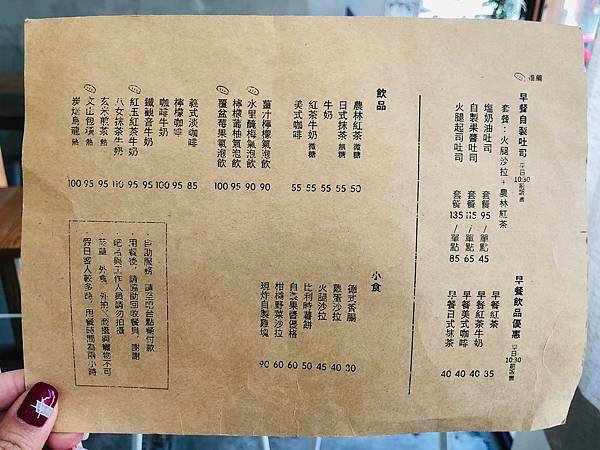 推薦
早餐自製吐司 平日10:30前販賣
套餐：火腿沙拉＋農林紅茶
塩奶油吐司 套餐95/單點45
自製果醬吐司 套餐115/單點65
火腿起司吐司 套餐135/單點85
早餐飲品優惠 平日10:30前販賣
早餐紅茶 35
早餐紅茶牛奶 40
早餐美式咖啡 40
早餐日式抹茶 40
飲品
農林紅茶 微糖 50
日式抹茶 無糖 55
牛奶 55
紅茶牛奶 微糖 55
美式咖啡 55
薑汁檸檬氣泡飲 90
水里醃梅氣泡飲 90
檸檬蘿柚氣泡飲 95
覆盆莓果氣泡飲 100
義式淡咖啡 85
檸檬咖啡 95
咖啡牛奶 100
鐵觀音牛奶 95
紅玉紅茶牛奶 95
八女抹茶牛奶 110
玄米煎茶 熱 95
文山包種 熱 95
炭焙烏龍 熱 100
小食
德式香腸 30
雞蛋沙拉 30
火腿沙拉 40
比利時薯餅 45
自製果醬優格 50
柑橘野菜沙拉 60
現炸自製雞塊 90
・自助服務，請至吧台點餐付款
・用餐後，請協助回收餐具，謝謝
・吧台與工作人員請勿拍攝
・菸草、外食、外拍、商攝與寵物不可
・假日客人較多時，用餐時間為兩小時